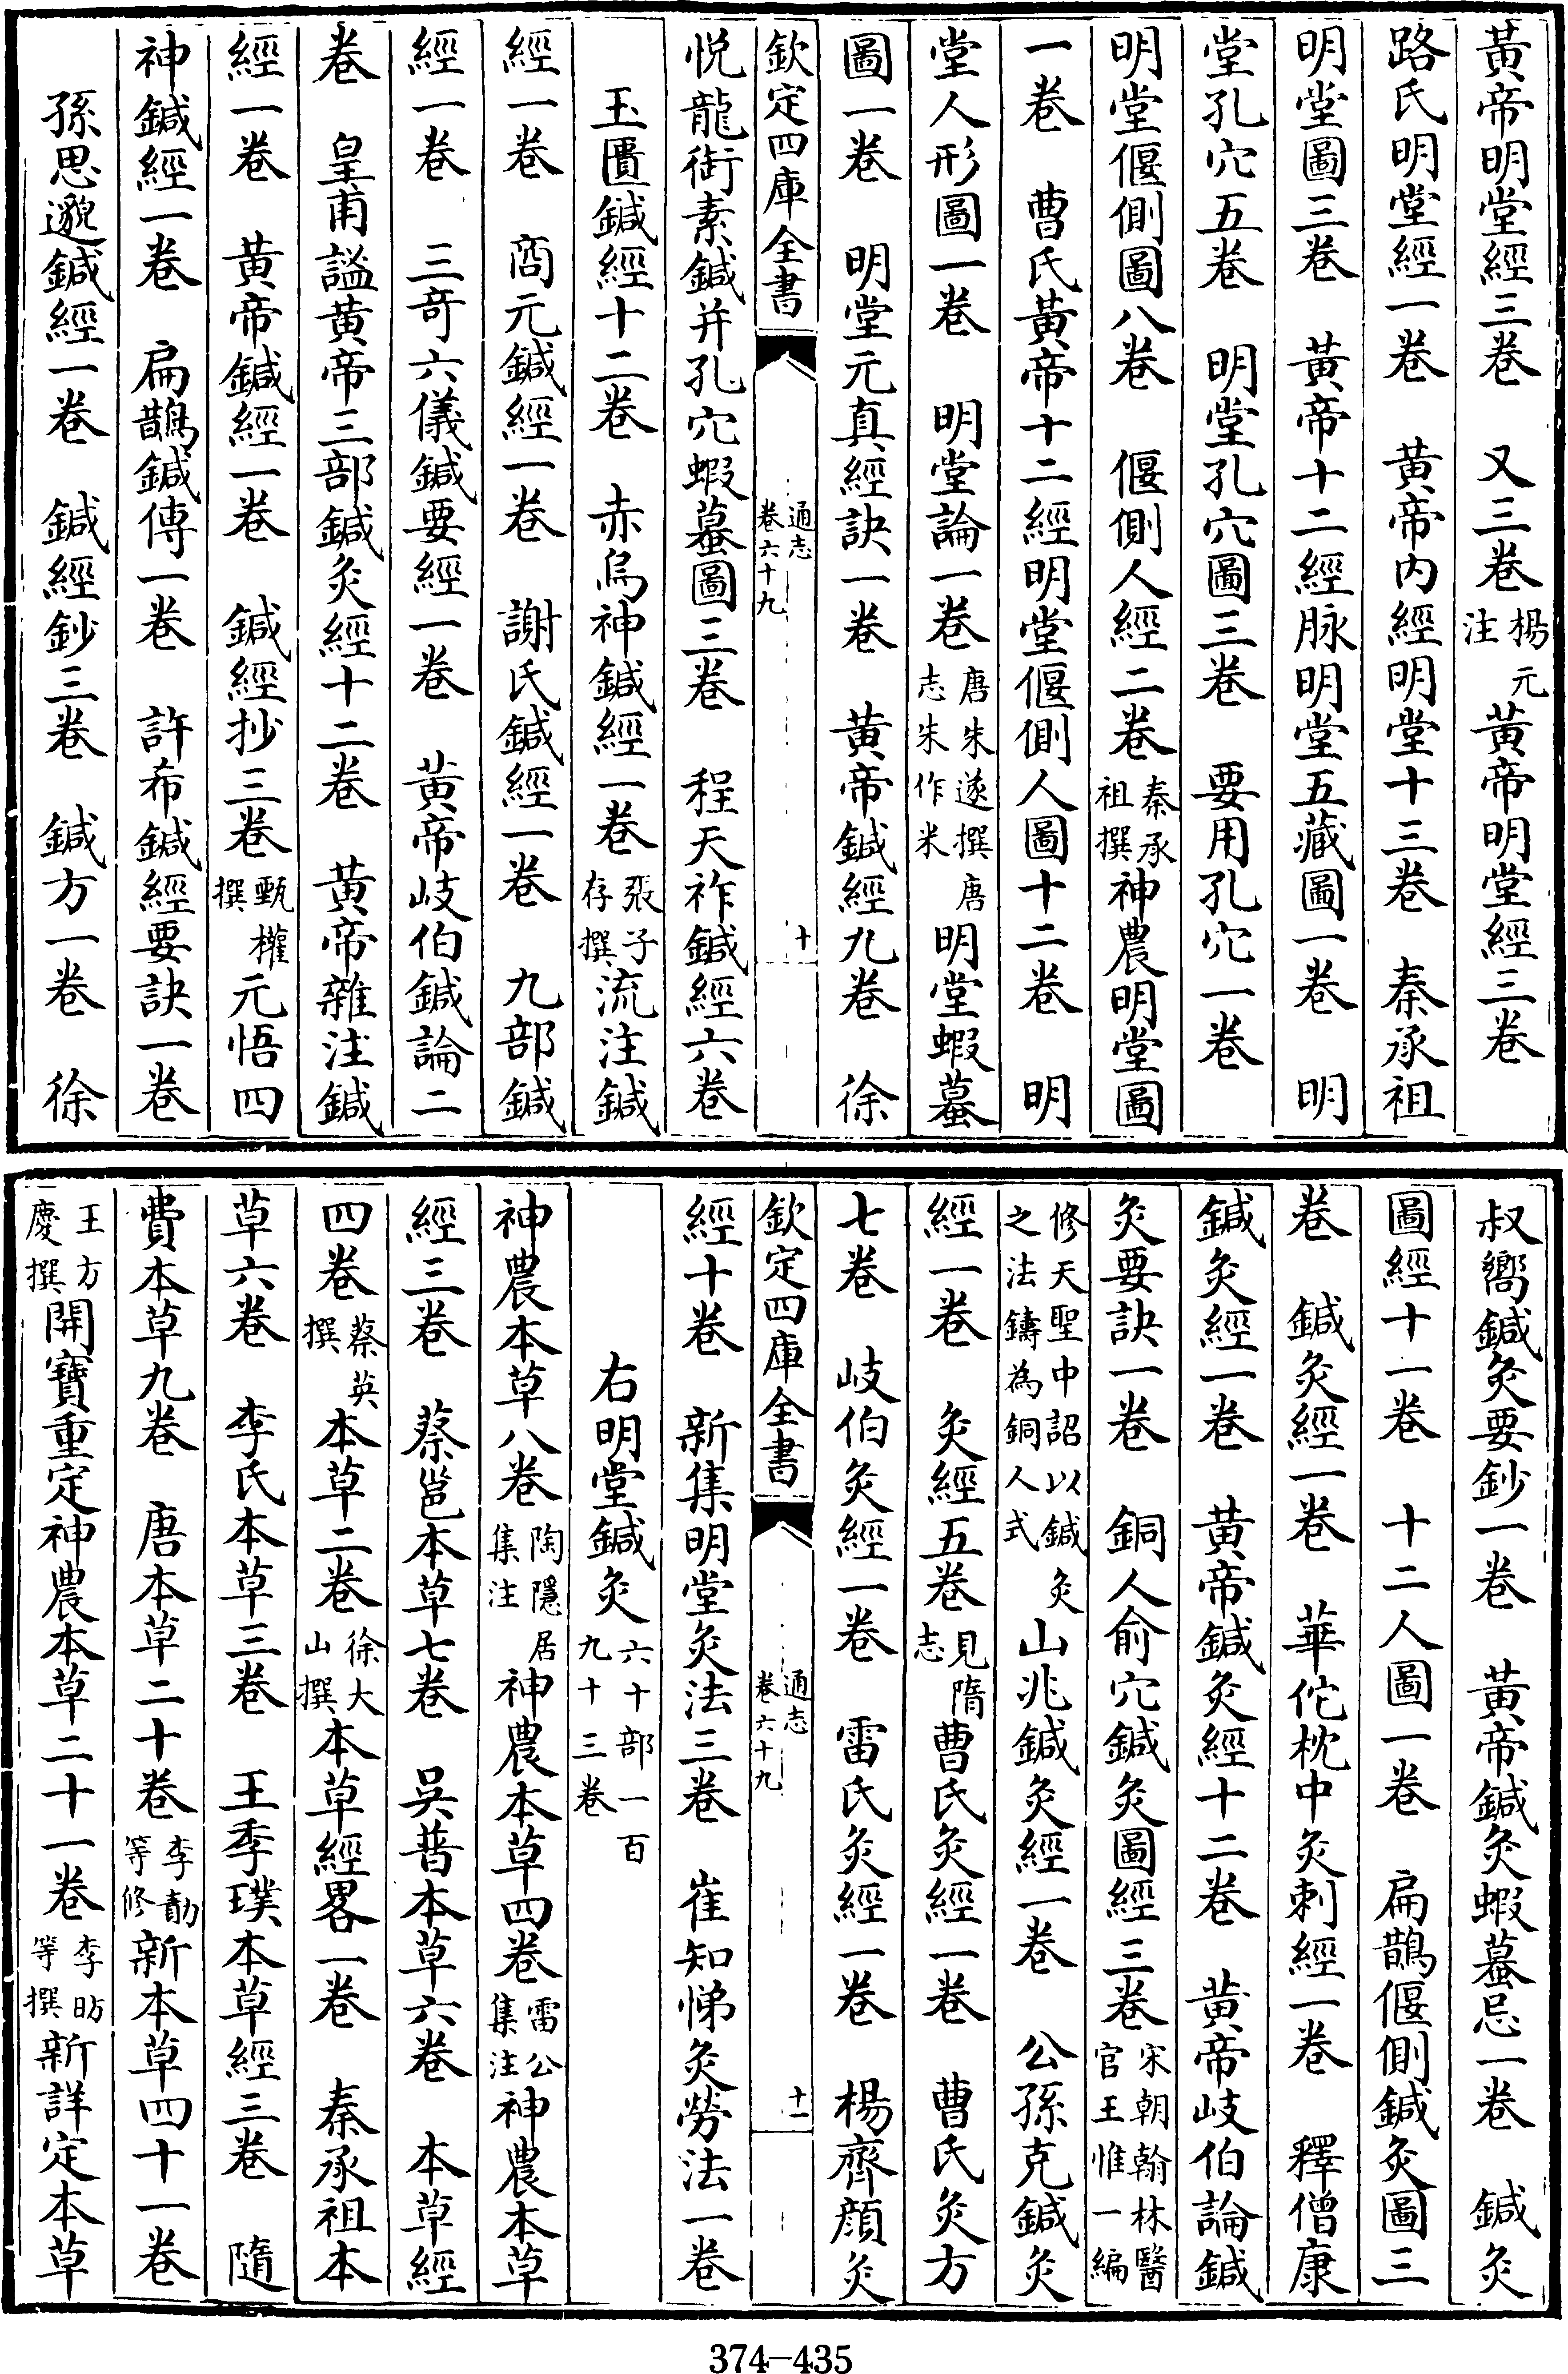 黃帝明堂經三卷　又三卷楊元注黃帝明堂經三卷
路氏明堂經一卷　黃帝内經明堂十三卷　秦承祖
明堂圖三卷　黃帝十二經脉明堂五藏圖一卷　明
堂孔穴五卷　明堂孔穴圖三卷　要用孔穴一卷
明堂偃側圖八卷　偃側人經二卷秦承祖撰神農明堂圖
一卷　曹氏黃帝十二經明堂偃側人圖十二卷　明
堂人形圖一卷　明堂論一卷唐朱遂撰唐志朱作米明堂蝦蟇
圖一卷　明堂元真經訣一卷　黃帝鍼經九卷　徐
欽定四庫全書　通志卷六十九　十
悦龍銜素鍼并孔穴蝦蟇圖三卷　程天祚鍼經六卷
玉匱鍼經十二卷　赤烏神鍼經一卷張子存撰流注鍼
經一卷　商元鍼經一卷　謝氏鍼經一卷　九部鍼
經一卷　三奇六儀鍼要經一卷　黃帝岐伯鍼論二
卷　皇甫謐黃帝三部鍼灸經十二卷　黃帝雜注鍼
經一卷　黃帝鍼經一卷　鍼經抄三卷甄權撰元悟四
神鍼經一卷　扁鵲鍼傳一卷　許希鍼經要訣一卷
孫思邈鍼經一卷　鍼經鈔三卷　鍼方一卷　徐
叔嚮鍼灸要鈔一卷　黃帝鍼灸蝦蟇忌一卷　鍼灸
圖經十一卷　十二人圖一卷　扁鵲偃側鍼灸圖三
卷　鍼灸經一卷　華佗枕中灸刺經一卷　釋僧康
鍼灸經一卷　黃帝鍼灸經十二卷　黃帝岐伯論鍼
灸要訣一卷　銅人俞穴鍼灸圖經三卷宋朝翰林醫官王惟一編
修天聖中詔以鍼灸之法鑄為銅人式山兆鍼灸經一卷　公孫克鍼灸
經一卷　灸經五卷見隋志曹氏灸經一卷　曹氏灸方
七卷　岐伯灸經一卷　雷氏灸經一卷　楊齊顔灸
欽定四庫全書　通志卷六十九　十一
經十卷　新集明堂灸法三卷　崔知悌灸勞法一卷
右明堂鍼灸六十部一百九十三卷
神農本草八卷陶隱居集注神農本草四卷雷公集注神農本草
經三卷　蔡邕本草七卷　吳普本草六卷　本草經
四卷蔡英撰本草二卷徐大山撰本草經畧一卷　秦承祖本
草六卷　李氏本草三卷　王季璞本草經三卷　隨
費本草九卷　唐本草二十卷李勣等修新本草四十一卷
王方慶撰開寶重定神農本草二十一卷李昉等撰新詳定本草
374-435